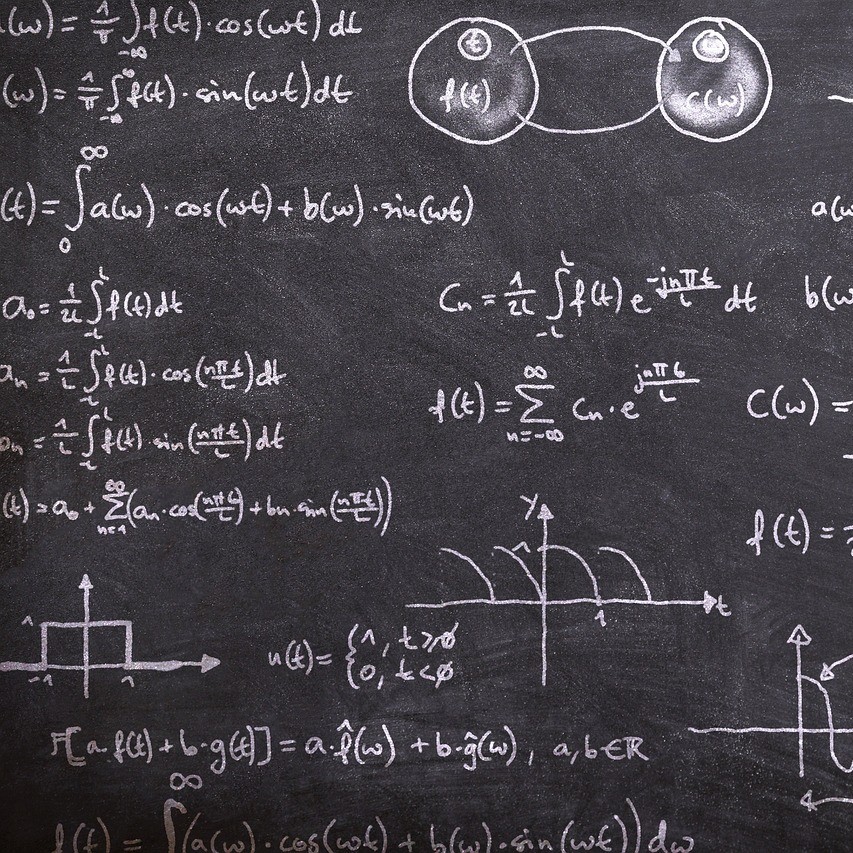 (ω) = 1/π ∫ f(t) · cos(ωt) dt
-∞
(ω) = 1/π ∫_{-∞}^{∞} f(t) · sin(ωt) dt
t
f(t)
C(ω)
(t) = ∫_{0}^{∞} a(ω) · cos(ωt) + b(ω) · sin(ωt)
a(ω
a₀ = 1/2L ∫_{-L}^{L} f(t) dt
Cn = 1/2L ∫_{-L}^{L} f(t) e^{-jnπt/L} dt
b(ω
an = 1/L ∫_{-L}^{L} f(t) · cos(nπt/L) dt
f(t) = ∑_{n=-∞}^{∞} Cn · e^{jnπt/L}
C(ω) =
bn = 1/L ∫_{-L}^{L} f(t) · sin(nπt/L) dt
(t) = a₀ + ∑_{n=1}^{∞} (an · cos(nπt/L) + bn · sin(nπt/L))
f(t) =
y
1
t
1
1
-1 1
u(t) = { 1, t ≥ 0
0, t < 0
F[a · f(t) + b · g(t)] = a · f̂(ω) + b · ĝ(ω), a, b ∈ ℝ
f(t) = ∫^{∞} (a(ω) · cos(ωt) + b(ω) · sin(ωt)) dω